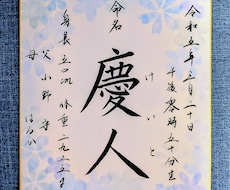 令和五年三月二十日
午後零時五十分生
命名
慶人
けいと
身長五〇㎝ 体重二九三五g
父 小野
母 はるか